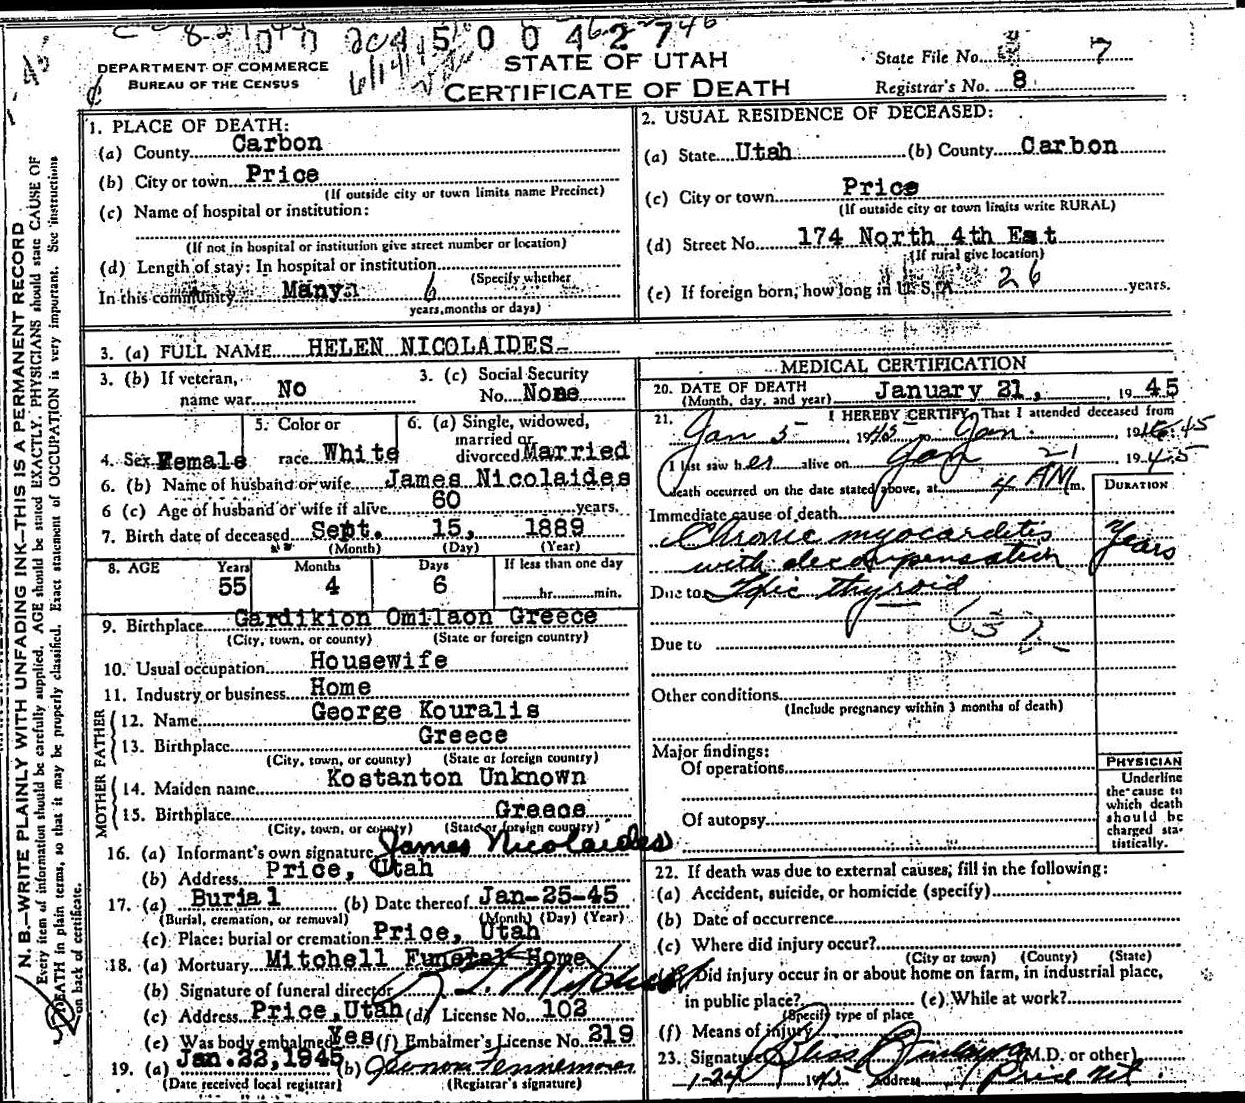 8-2
0 0 4 5 0 0 4 2 7
DEPARTMENT OF COMMERCE
BUREAU OF THE CENSUS
STATE OF UTAH
CERTIFICATE OF DEATH
State File No. 7
Registrar's No. 8
N. B.—WRITE PLAINLY WITH UNFADING INK—THIS IS A PERMANENT RECORD
Every item of information should be carefully supplied. AGE should be stated EXACTLY. PHYSICIANS should state CAUSE OF
DEATH in plain terms, so that it may be properly classified. Exact statement of OCCUPATION is very important. See instructions
on back of certificate.
1. PLACE OF DEATH:
(a) County Carbon
(b) City or town Price
(If outside city or town limits name Precinct)
(c) Name of hospital or institution:
(If not in hospital or institution give street number or location)
(d) Length of stay: In hospital or institution
(Specify whether
In this community Manya 6
years, months or days)
2. USUAL RESIDENCE OF DECEASED:
(a) State Utah (b) County Carbon
(c) City or town Price
(If outside city or town limits write RURAL)
(d) Street No. 174 North 4th Eat
(If rural give location)
(e) If foreign born, how long in U. S. A. 26 years.
3. (a) FULL NAME HELEN NICOLAIDES
3. (b) If veteran, name war No
3. (c) Social Security No. None
4. Sex Female
5. Color or race White
6. (a) Single, widowed, married or divorced Married
6. (b) Name of husband or wife James Nicolaides
6 (c) Age of husband or wife if alive 60 years.
7. Birth date of deceased Sept. 15, 1889
(Month) (Day) (Year)
8. AGE Years Months Days If less than one day
55 4 6 hr. min.
9. Birthplace Gardikion Omilaon Greece
(City, town, or county) (State or foreign country)
10. Usual occupation Housewife
11. Industry or business Home
FATHER
12. Name George Kouralis
13. Birthplace Greece
(City, town, or county) (State or foreign country)
MOTHER
14. Maiden name Kostanton Unknown
15. Birthplace Greece
(City, town, or county) (State or foreign country)
16. (a) Informant's own signature James Nicolaides
(b) Address Price, Utah
17. (a) Burial (b) Date thereof Jan-25-45
(Burial, cremation, or removal) (Month) (Day) (Year)
(c) Place: burial or cremation Price, Utah
18. (a) Mortuary Mitchell Funeral Home
(b) Signature of funeral director Mitchell
(c) Address Price, Utah (d) License No. 102
(e) Was body embalmed Yes (f) Embalmer's License No. 219
19. (a) Jan. 22, 1945 (b)
(Date received local registrar) (Registrar's signature)
MEDICAL CERTIFICATION
20. DATE OF DEATH January 21, 1945
(Month, day, and year)
21. I HEREBY CERTIFY, That I attended deceased from
Jan 5 1945 to Jan. 1945
I last saw her alive on Jan 21 1945
death occurred on the date stated above, at 4 AM m.
DURATION
Immediate cause of death
Chronic myocarditis Years
with decompensation
Due to thyroid
632
Due to
Other conditions
(Include pregnancy within 3 months of death)
Major findings:
Of operations
Of autopsy
PHYSICIAN
Underline
the cause to
which death
should be
charged sta-
tistically.
22. If death was due to external causes, fill in the following:
(a) Accident, suicide, or homicide (specify)
(b) Date of occurrence
(c) Where did injury occur?
(City or town) (County) (State)
Did injury occur in or about home on farm, in industrial place,
in public place? (e) While at work?
(Specify type of place
(f) Means of injury
23. Signature (M.D. or other)
1-24 1945 Address Price Ut.